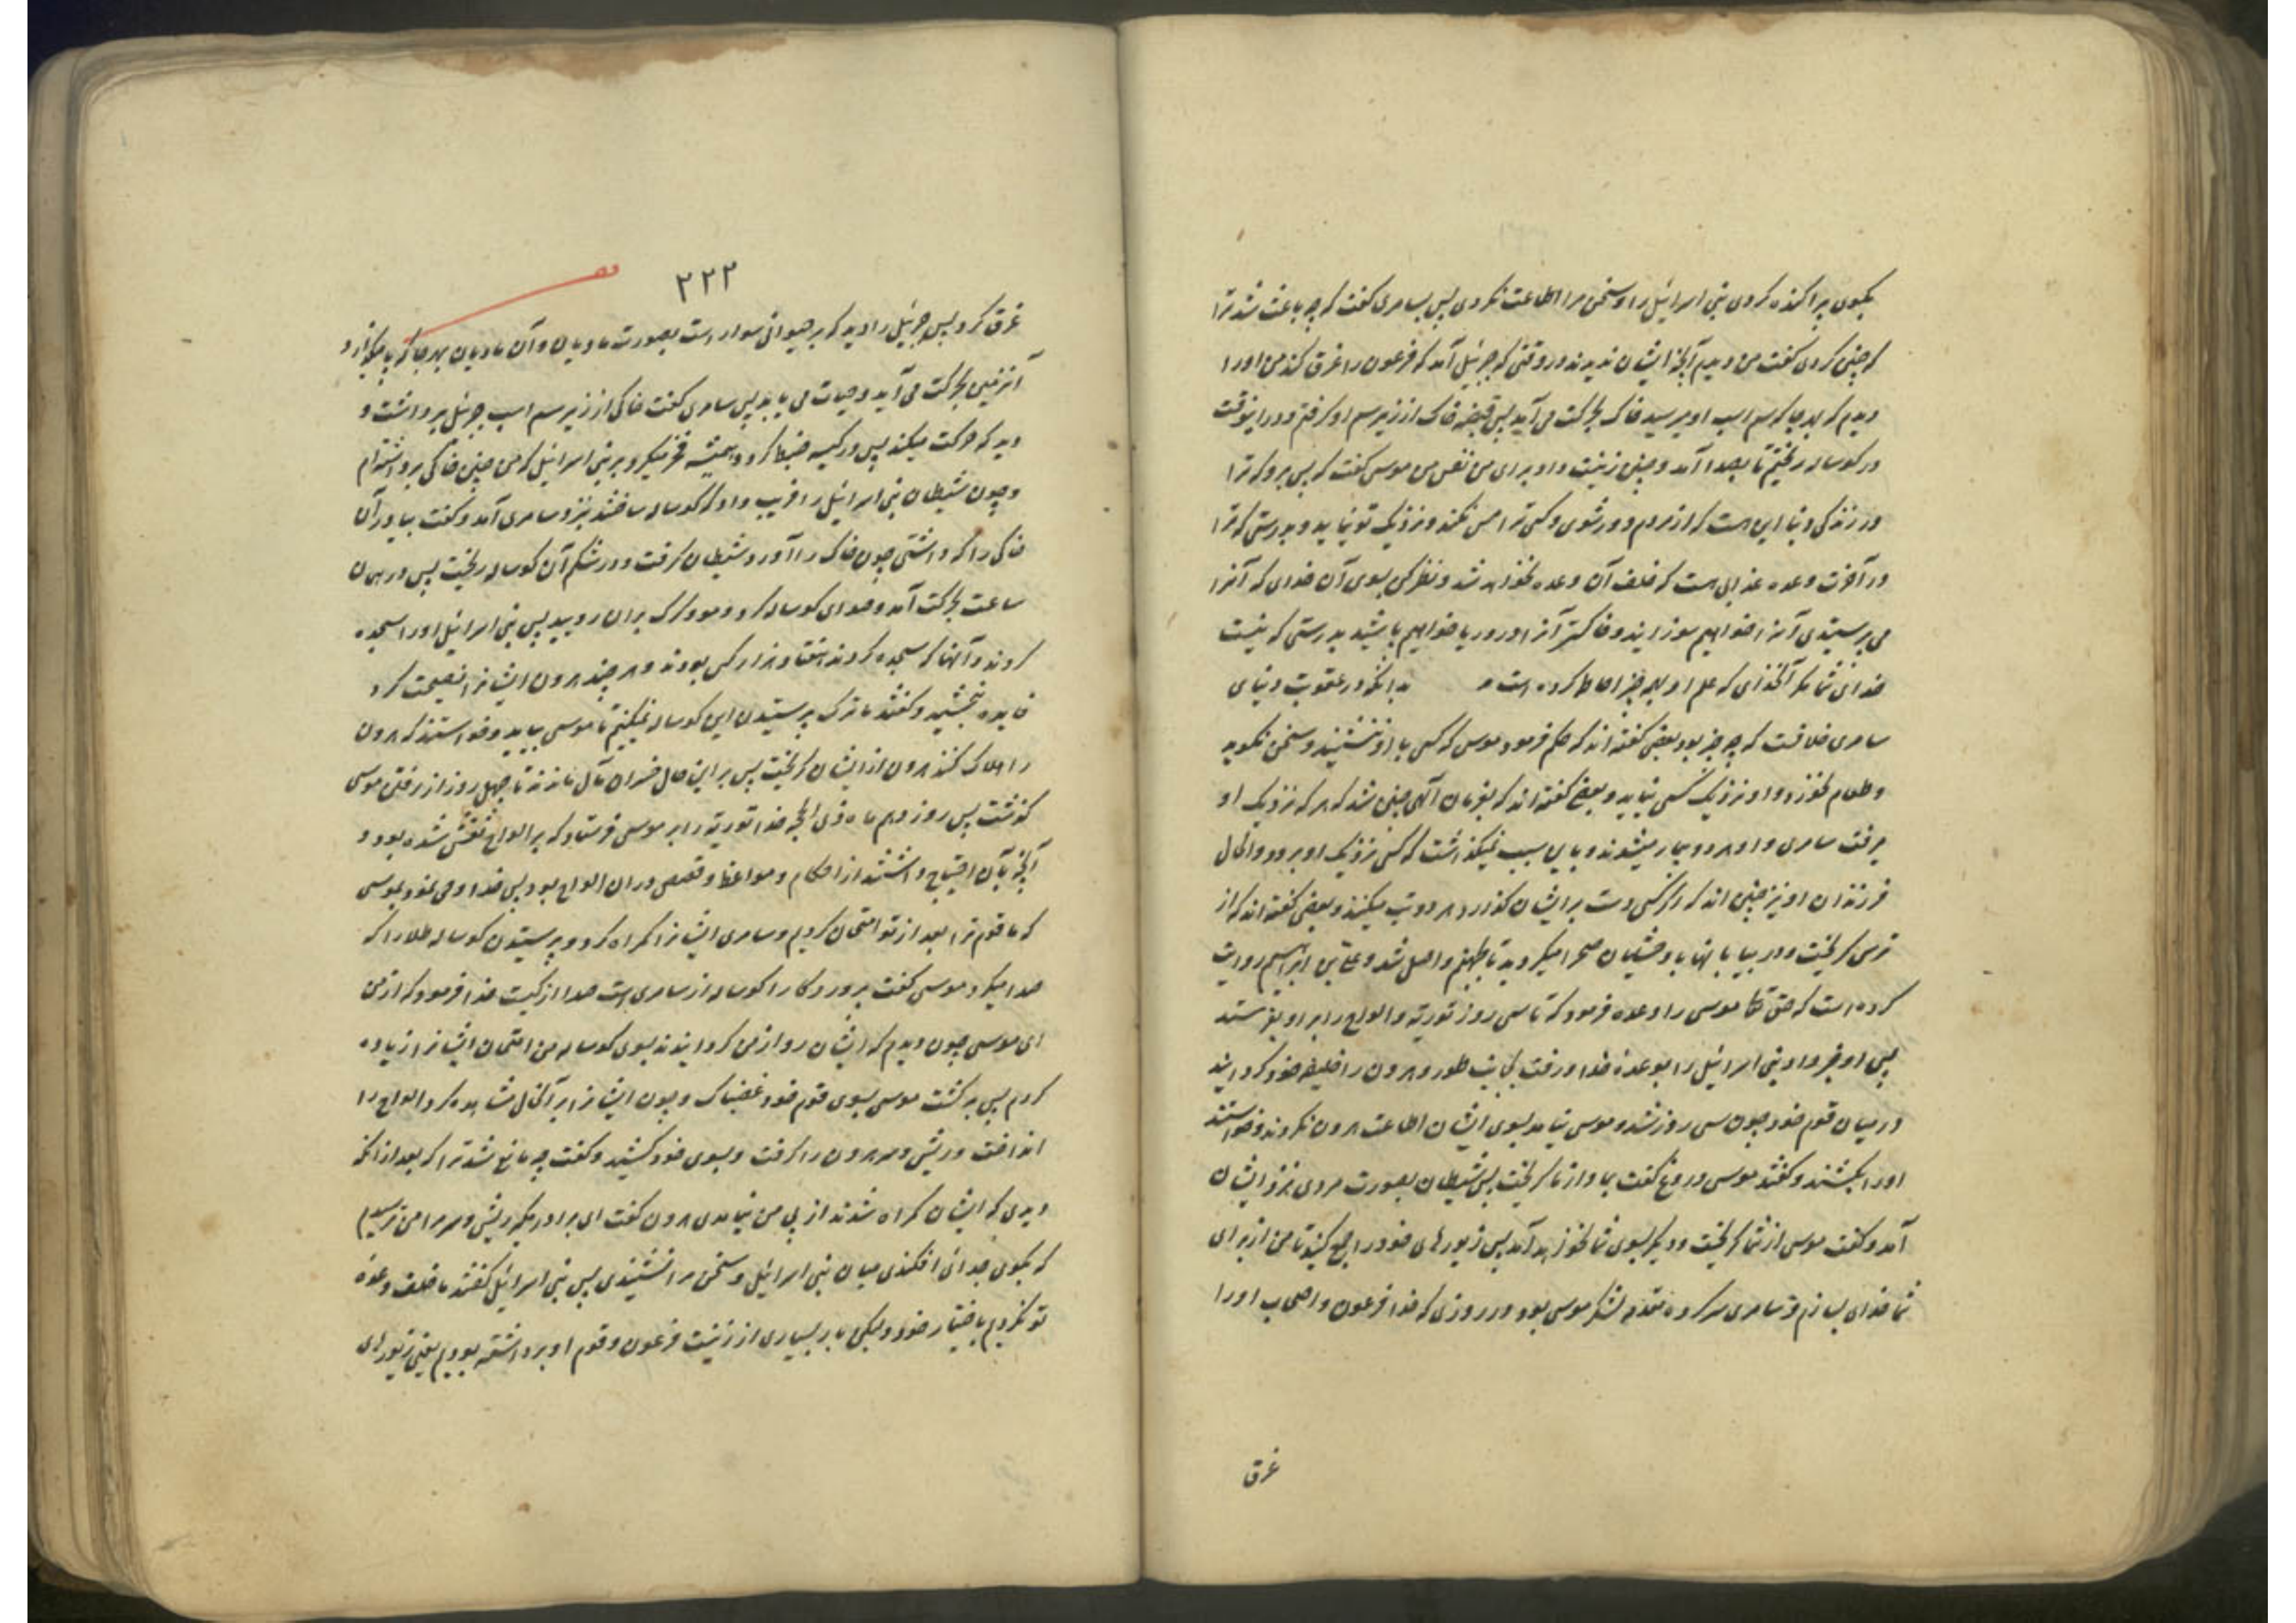 بگوی پراکنده کردی بنی اسرائیل را و سخن مرا اطاعت نکردی پس بسامری گفت که چه باعث شد ترا
که چنین کردی گفت من دیدم آنچه ایشان ندیدند در وقتی که جبرئیل آمد که فرعون را غرق کند من او را
دیدم که هر جا که سم اسب او میرسید خاک بحرکت می آید پس قبضه خاک از زیر سم او گرفتم و در اینوقت
در گوساله ریختم تا بصدا آمد و چنین زینت داد برای من نفس من موسی گفت که پس برو که ترا
در زندگی دنیا این هست که از مردم دور شوی و کسی ترا مس نکند و نزدیک تو نیاید و بدرستی که ترا
در آخرت وعده عذابی هست که خلف آن وعده نخواهد شد و نظر کن بسوی آن خدای که آنرا
می پرستیدی آنرا خواهیم سوزانید و خاکستر آنرا در دریا خواهیم پاشید بدرستی که نیست
خدای شما مگر آنخدای که علم او بهر چیز احاطه کرده است بدانکه در عقوبت دنیای
سامری خلافست که چه چیز بود بعضی گفته اند که حکم فرمود موسی که کسی با او ننشیند و سخن نگوید
و طعام نخورد و او نزدیک کسی نیاید و بعضی گفته اند که بفرمان آلهی چنین شد که هر که نزدیک او
میرفت سامری و او هر دو بیمار میشدند و باین سبب نمیگذاشت که کسی نزدیک او برود و الحال
فرزندان او نیز چنین اند که اگر کسی دست بر ایشان گذارد هر دو تب میکنند و بعضی گفته اند که از
ترس گریخت و در بیابانها با وحشیان صحرا میگردید تا بجهنم واصل شد و علی بن ابراهیم روایت
کرده است که حق تعا موسی را وعده فرمود که تا سی روز توریة و الواح را برای او بفرستد
پس او خبر داد بنی اسرائیل را بوعده خدا و رفت بجانب طور و هرون را خلیفه خود گردانید
در میان قوم خود چون سی روز شد و موسی نیامد بسوی ایشان اطاعت هرون نکردند و خواستند
او را بکشند و گفتند موسی دروغ گفت بما و از ما گریخت پس شیطان بصورت مردی نزد ایشان
آمد و گفت موسی از شما گریخت و دیگر بسوی شما نخواهد آمد پس زیورهای خود را جمع کنید تا من از برای
شما خدای بسازم و سامری سرکرده مقدمه لشکر موسی بود و در روزی که خدا فرعون و اصحاب او را
غرق
۲۲۲
غرق کرد پس جبرئیل را دید که بر حیوانی سوار است بصورت مادیان و آن مادیان بهر جا که پا میگذارد
آنزمین بحرکت می آید و حیات می یابد پس سامری کفت خاکی از زیر سم اسب جبرئیل برداشت و
دید که حرکت میکند پس در کیسه ضبط کرد و همیشه فخر میکرد بر بنی اسرائیل که من چنین خاکی برداشته ام
و چون شیطان بنی اسرائیل را فریب داد که گوساله ساختند نزد سامری آمد و گفت بیاور آن
خاکی را که داشتی چون خاک را آورد شیطان گرفت و در شکم آن گوساله ریخت پس در همان
ساعت بحرکت آمد و صدای گوساله کرد و مو و کرک بر ان روید پس بنی اسرائیل او را سجده
کردند و آنها که سجده کردند هفتاد هزار کس بودند و هر چند هرون ایشانرا نصیحت کرد
فایده نبخشید و گفتند ما ترک پرستیدن این گوساله نمیکنیم تا موسی بیاید و خواستند که هرون
را هلاک کنند هرون از ایشان گریخت پس بر این حال خسران مآل ماندند تا چهل روز از رفتن موسی
گذشت پس روز دهم ماه ذی الحجه خدا توریة را بر موسی فرستاد که بر الواح نقش شده بود و
آنچه بآن احتیاج داشتند از احکام و مواعظ و قصص در ان الواح بود پس خدا وحی نمود بموسی
که ما قوم ترا بعد از تو امتحان کردیم و سامری ایشانرا گمراه کرد و پرستیدن گوساله طلا را که
صدا میکرد موسی گفت پروردگارا گوساله از سامری است صدا از کیست خدا فرمود که از من
ای موسی چون دیدم که ایشان رو از من گردانیدند بسوی گوساله من امتحان ایشانرا زیاده
کردم پس برگشت موسی بسوی قوم خود غضبناک و چون ایشانرا بر آنحال مشاهده کرد الواح را
انداخت و ریش و سر هرون را گرفت و بسوی خود کشید و گفت چه مانع شد ترا که بعد از آنکه
دیدی که ایشان گمراه شدند از پی من نیامدی هرون گفت ای برادر مگیر ریش و سر مرا من ترسیدم
که بگوی جدائی افکندی میان بنی اسرائیل و سخن مرا نشنیدی پس بنی اسرائیل گفتند ما خلف وعده
تو نکردیم باختیار خود ولیکن بار بسیاری از زینت فرعون و قوم او برداشته بودیم یعنی زیورهای